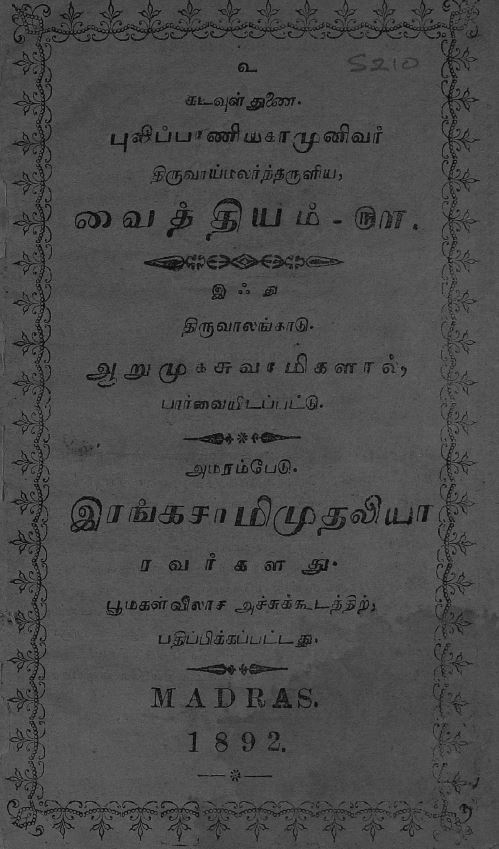 உ
S210
கடவுள் துணை.
புலிப்பாணியகாமுனிவர்
திருவாய்மலர்ந்தருளிய,
வைத்தியம் - ௫௱.
இஃது
திருவாலங்காடு.
ஆறுமுகசுவாமிகளால்,
பார்வையிடப்பட்டு.
அமரம்பேடு.
இரங்கசாமிமுதலியா
ரவர்களது.
பூமகள்விலாச அச்சுக்கூடத்திற்,
பதிப்பிக்கப்பட்டது.
MADRAS.
1892.